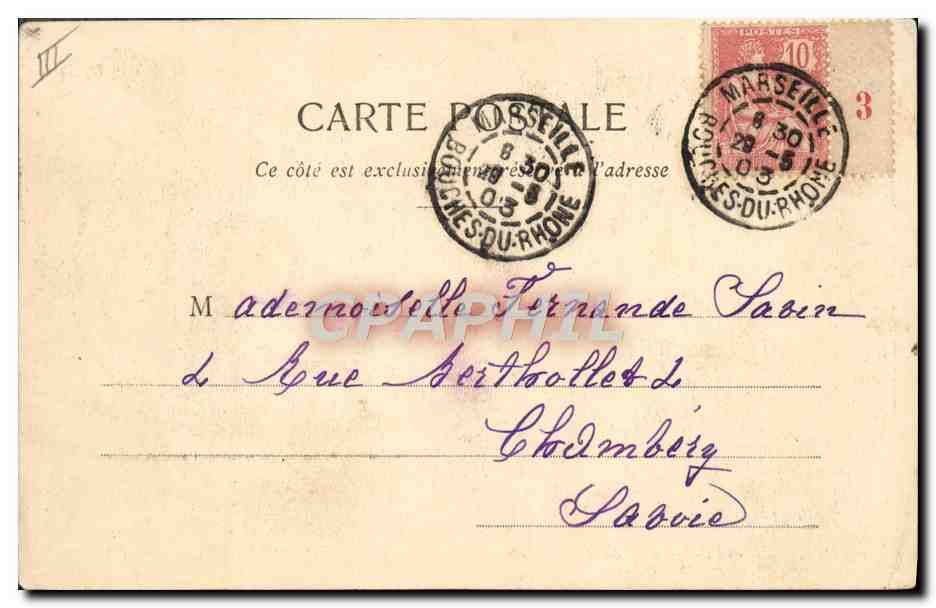 III
POSTES
10
3
CARTE POSTALE
Ce côté est exclusivement réservé à l'adresse
MARSEILLE
8 30
29 -5
03
BOUCHES-DU-RHONE
MARSEILLE
8 30
29 -5
03
BOUCHES-DU-RHONE
Mademoiselle Fernande Savin
2 Rue Berthollet 2
Chambéry
Savoie
CPAPHIL